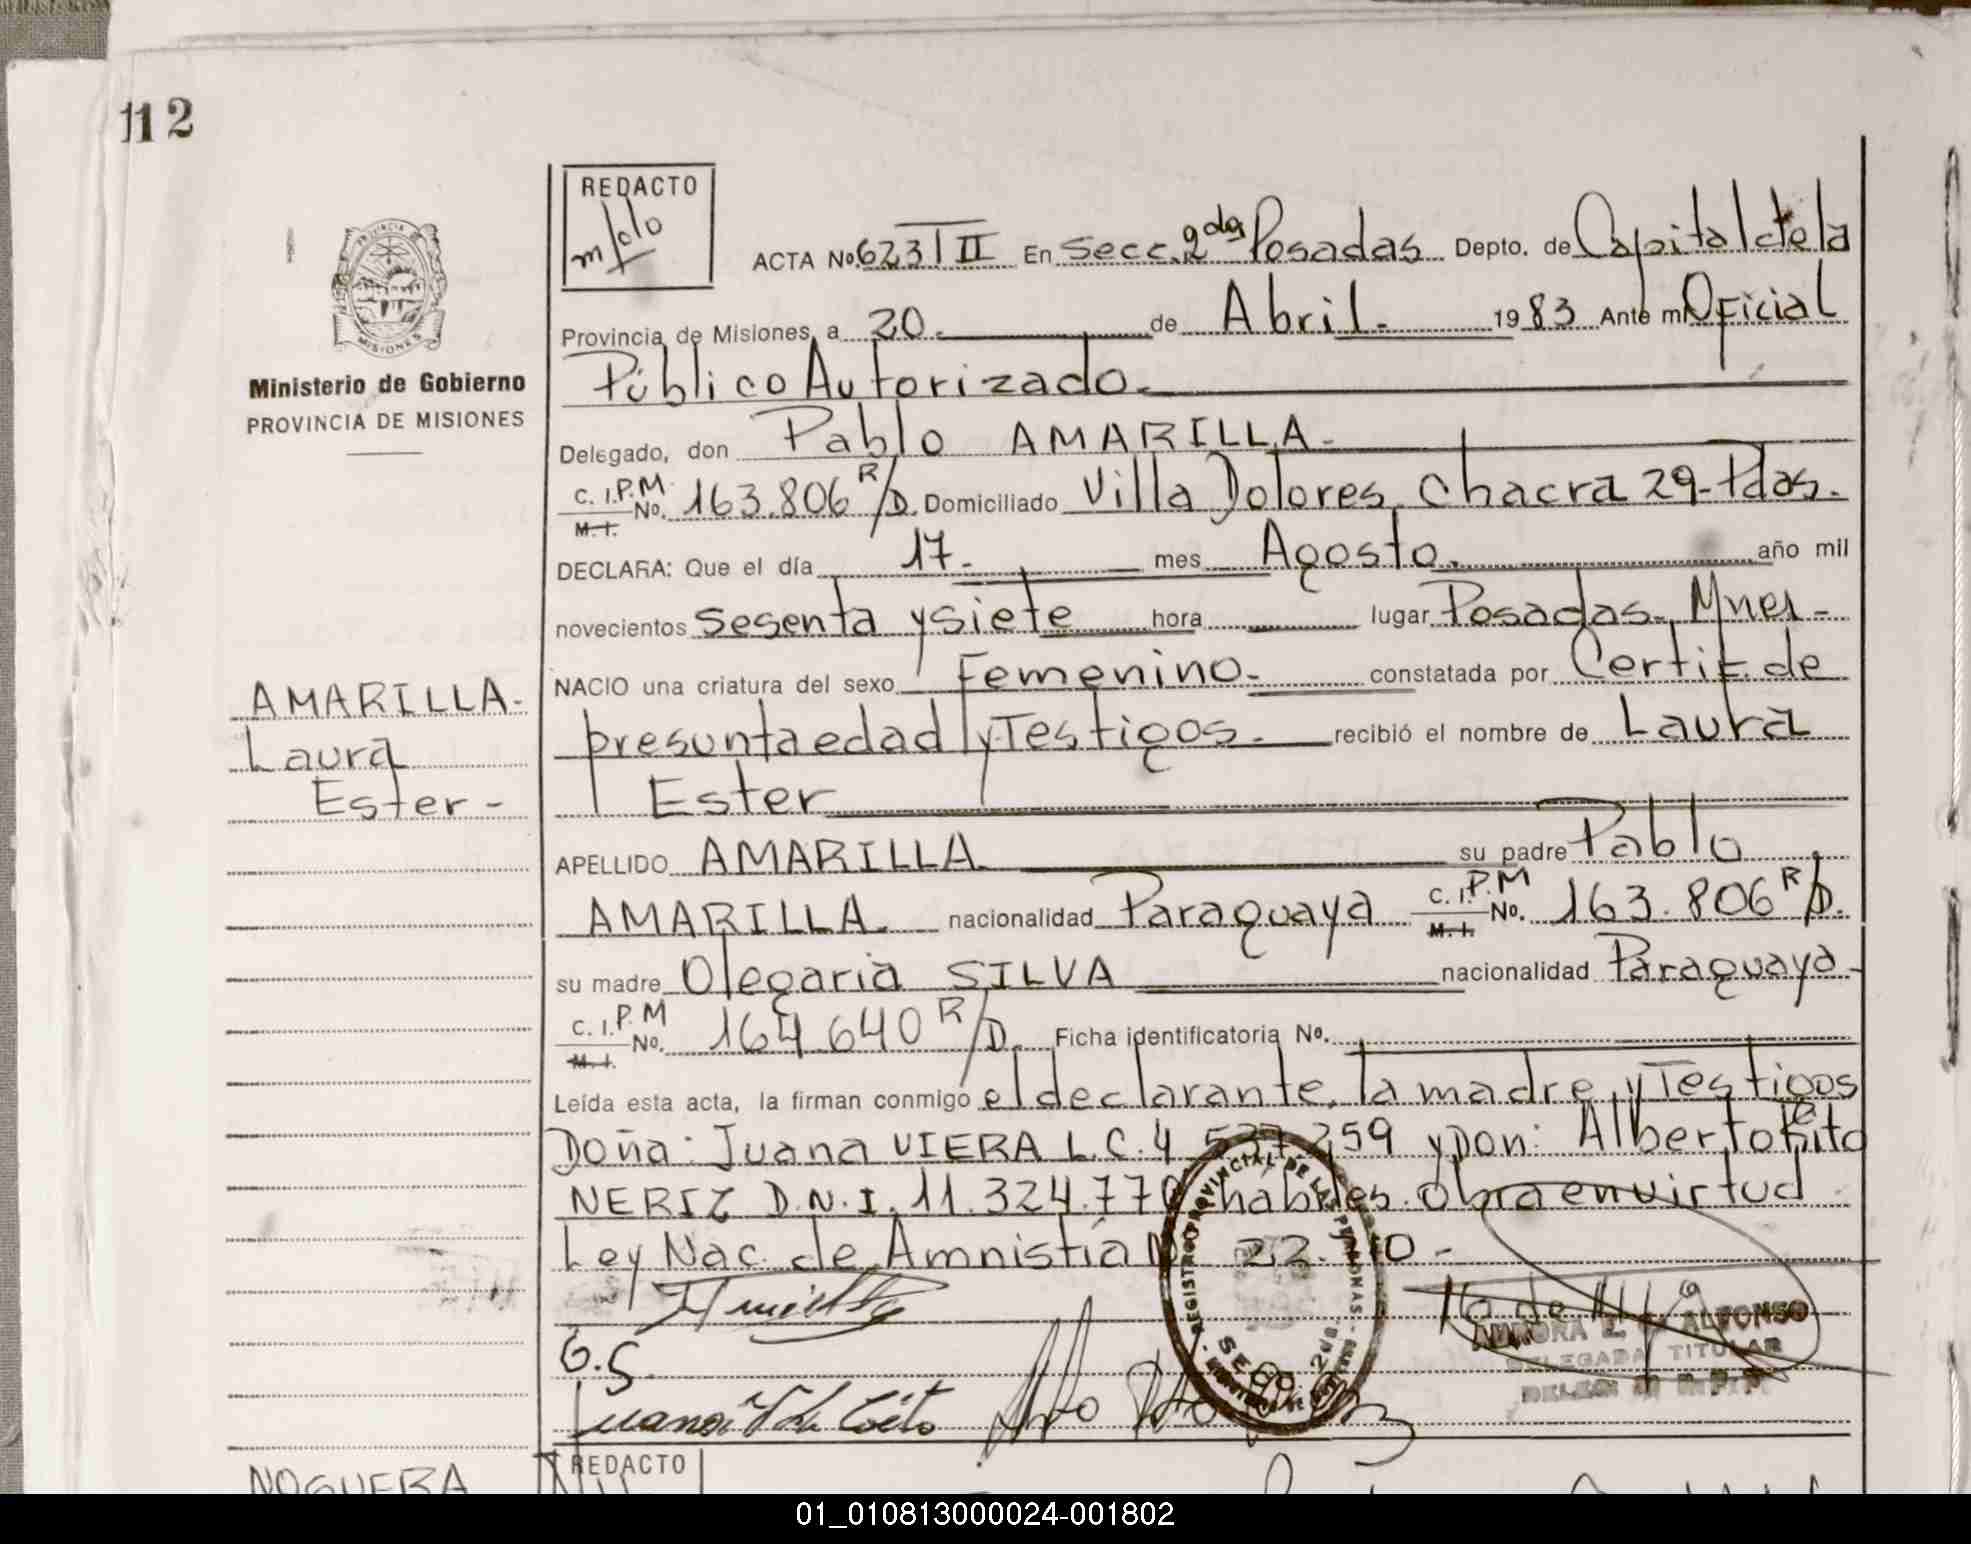 112
REDACTO
ACTA No 623 T II En Secc. 2da Posadas Depto. de Capital de la
Provincia de Misiones, a 20.- de Abril.- 1983 Ante mi Oficial
Público Autorizado.-
Ministerio de Gobierno
PROVINCIA DE MISIONES
Delegado, don Pablo AMARILLA.-
C. I. P.M. M. I. No. 163.806 R/D. Domiciliado Villa Dolores, Chacra 29-Pdas.-
DECLARA: Que el día 17.- mes Agosto.- año mil
novecientos sesenta y siete hora lugar Posadas-Mnes-
NACIO una criatura del sexo Femenino.- constatada por Certif. de
presunta edad y Testigos.- recibió el nombre de Laura
Ester
AMARILLA.-
Laura
Ester-
APELLIDO AMARILLA su padre Pablo
AMARILLA. nacionalidad Paraguaya C. I. P.M M. I. No. 163.806 R/D.
su madre Olegaria SILVA nacionalidad Paraguaya-
C. I. P.M M. I. No. 164.640 R/D. Ficha identificatoria No.
Leída esta acta, la firman conmigo el declarante, la madre, y Testigos
Doña: Juana VIERA L.C. 4 537 259 y Don: Alberto Rito
NERIZ D.N.I. 11.324.770 habiles. Obra en virtud
Ley Nac. de Amnistía N 22. 10-
O.S.
REGISTRO PROVINCIAL DE LAS PERSONAS
SECC. 2da
AURORA E. ALFONSO
DELEGADA TITULAR
NOGUERA
REDACTO
01_010813000024-001802